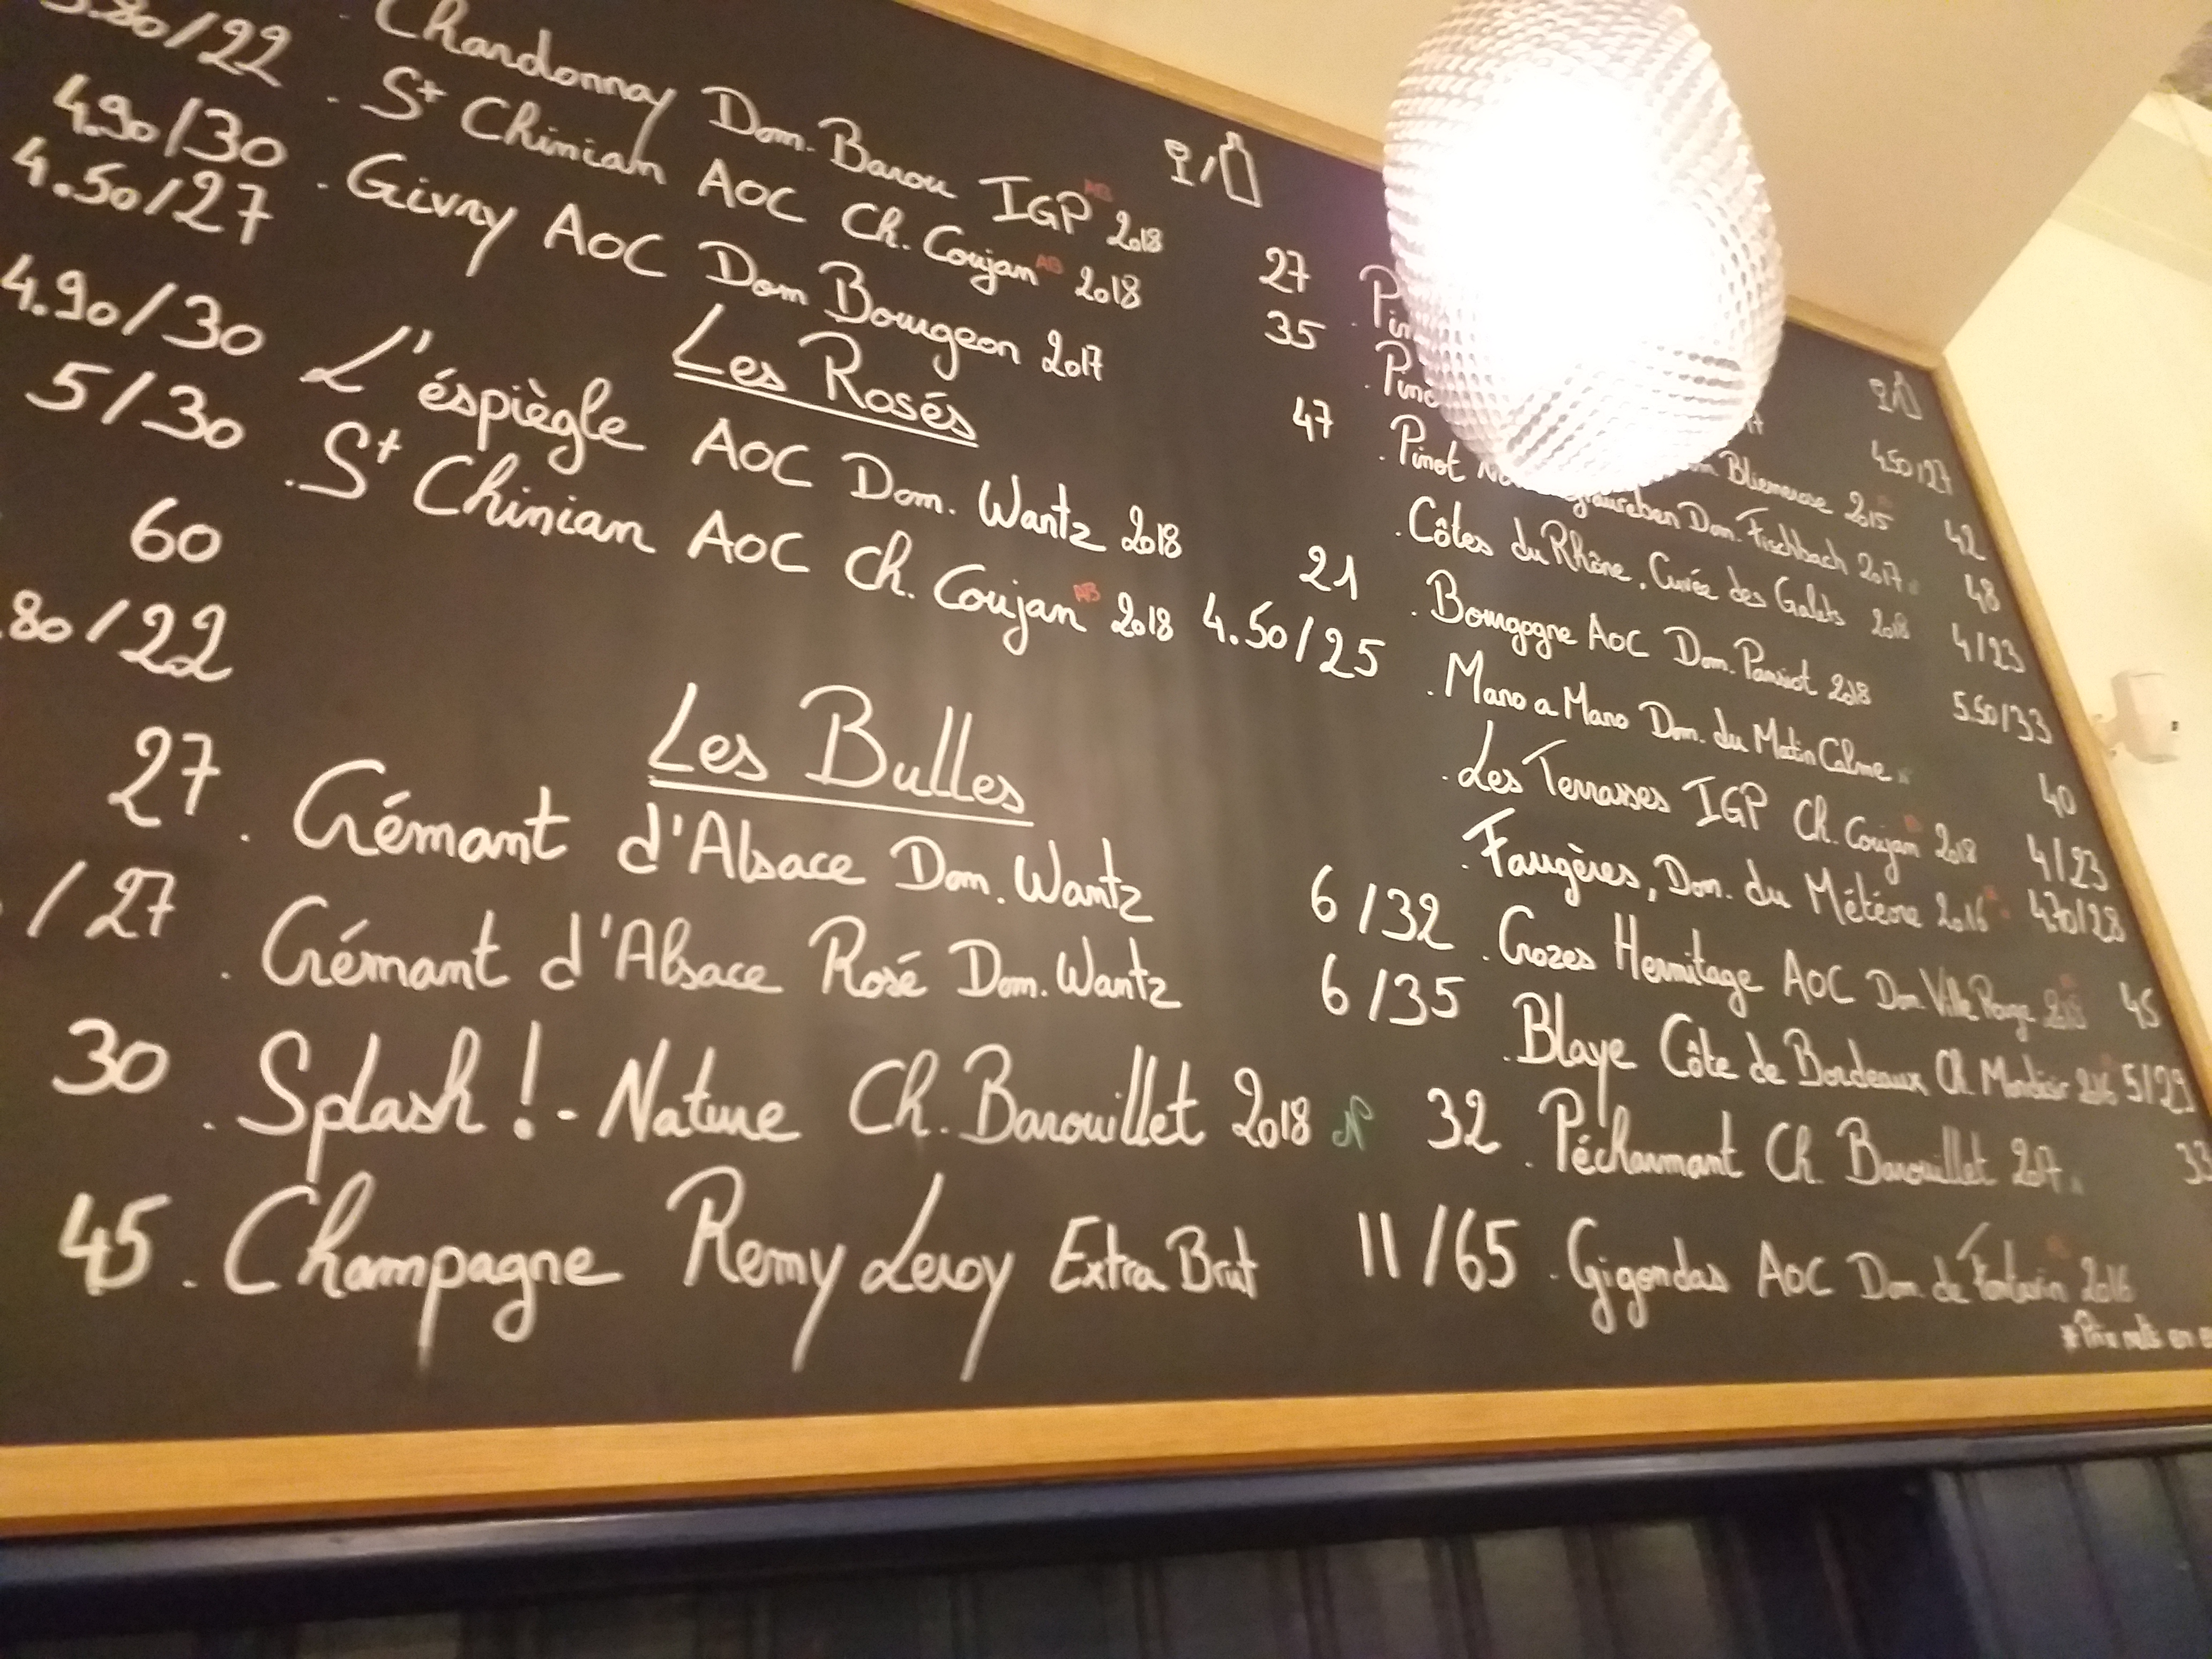 /22
4.90/30
4.50/27
4.90/30
5/30
60
80/22
27
/27
30
45
. Chardonnay Dom. Barou IGP AB 2018 27
. St Chinian AOC Ch. Coujan AB 2018 35
. Givry AOC Dom Bourgeon 2017 47
Les Rosés
L'éspiègle AOC Dom. Wantz 2018 21
. St Chinian AOC Ch. Coujan AB 2018 4.50/25
Les Bulles
. Crémant d'Alsace Dom. Wantz 6/32
. Crémant d'Alsace Rosé Dom. Wantz 6/35
. Splash ! - Nature Ch. Barouillet 2018 N 32
. Champagne Remy Leroy Extra Brut 11/65
4.50/27
Bliemerose 2015 42
. Pinot Dom. Fischbach 2017 48
. Côtes du Rhône, Cuvée des Galets 2018 4/23
. Bourgogne AOC Dom. Pansiot 2018 5.50/33
. Mano a Mano Dom. du Matin Calme 40
. Les Terrasses IGP Ch. Coujan 2018 4/23
. Faugères, Dom. du Météore 2016 4.70/28
. Crozes Hermitage AOC Dom Ville Rouge 45
. Blaye Côte de Bordeaux Ch. 2016 5/29
. Pécharmant Ch Barouillet 2017 33
. Gigondas AOC Dom. de 2016
* Prix nets en